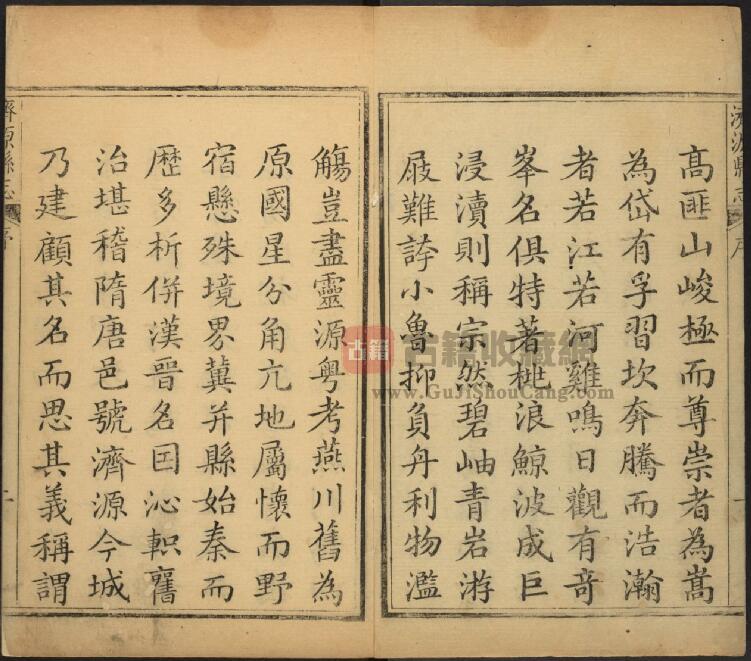 濟源縣志
序
一
高匪山峻極而尊崇者為嵩
為岱有孚習坎奔騰而浩瀚
者若江若河雞鳴日觀有奇
峯名俱特著桃浪鯨波成巨
浸瀆則稱宗然碧岫青岩游
屐難誇小魯抑負舟利物濫
觴豈盡靈源粵考燕川舊為
原國星分角亢地屬懷而野
宿懸殊境界冀并縣始秦而
歷多析併漢晉名因沁軹舊
治堪稽隋唐邑號濟源今城
乃建顧其名而思其義稱謂
濟源縣志
序
二
古籍
古籍收藏網
www.GuJiShouCang.com